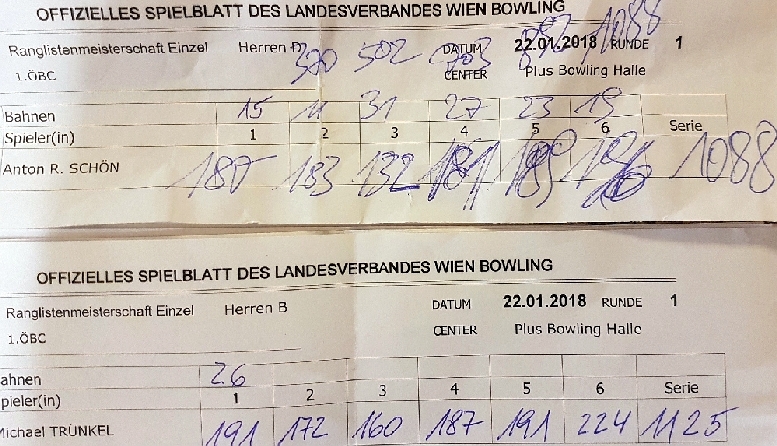 OFFIZIELLES SPIELBLATT DES LANDESVERBANDES WIEN BOWLING 1088
Ranglistenmeisterschaft Einzel Herren 370 502 DATUM 22.01.2018 RUNDE 1
1.ÖBC CENTER Plus Bowling Halle
Bahnen 15 11 31 27 23 19
Spieler(in) 1 2 3 4 5 6 Serie
Anton R. SCHÖN 187 183 132 1088
OFFIZIELLES SPIELBLATT DES LANDESVERBANDES WIEN BOWLING
Ranglistenmeisterschaft Einzel Herren B DATUM 22.01.2018 RUNDE 1
1.ÖBC CENTER Plus Bowling Halle
ahnen 26
pieler(in) 1 2 3 4 5 6 Serie
Michael TRUNKEL 191 172 160 187 191 224 1125